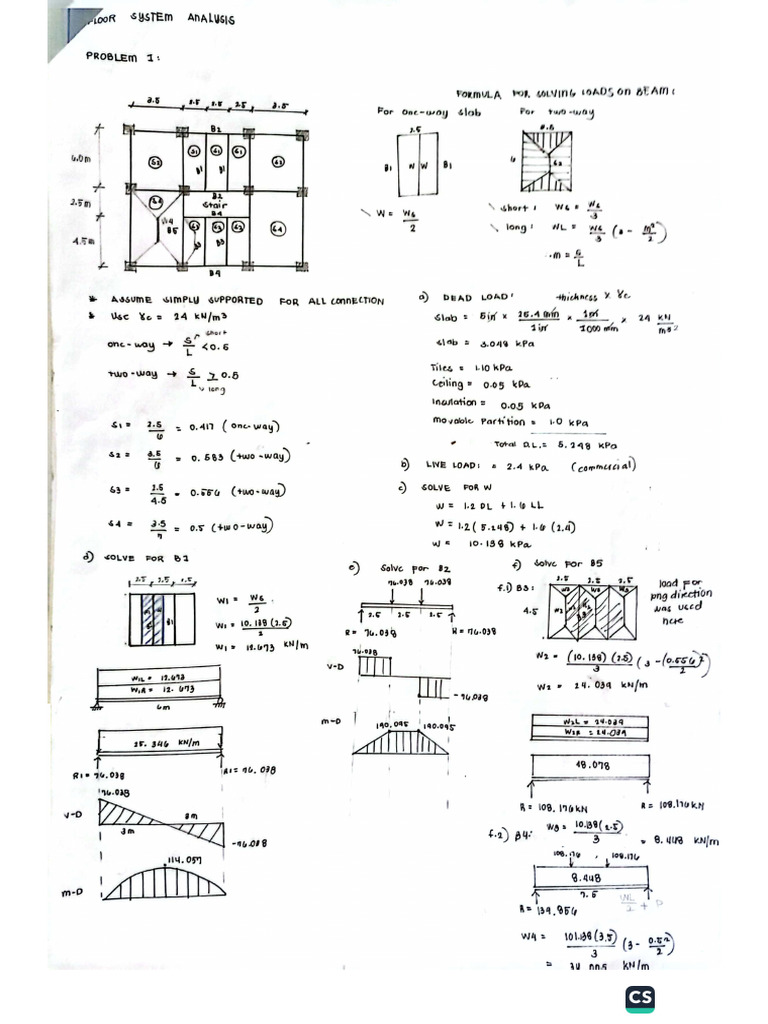 FLOOR SYSTEM ANALYSIS
PROBLEM 1:
3.5 2.5 2.5 2.5 3.5
6.0m
2.5 m
4.5m
B2
S2 S1 S1 S1 S2
B1 B1
B2
Stair
B4
B5
S3 S3 S3
B3 B3
S4
B4
FORMULA FOR SOLVING LOADS ON BEAM:
For one-way slab For two-way
2.5
B1 W W B1
W = WS/2
short: WS = WS/3
long: WL = WS/3 (3 - m²/2)
m = S/L
* ASSUME SIMPLY SUPPORTED FOR ALL CONNECTION
* Use γc = 24 kN/m³
one-way → S/L < 0.5
short
two-way → S/L ≥ 0.5
long
S1 = 2.5/6 = 0.417 (one-way)
S2 = 3.5/6 = 0.583 (two-way)
S3 = 2.5/4.5 = 0.556 (two-way)
S4 = 3.5/7 = 0.5 (two-way)
a) DEAD LOAD: thickness x γc
Slab = 5in x 25.4 mm/1in x 1m/1000 mm x 24 kN/m³
slab = 3.048 kPa
Tiles = 1.10 kPa
Ceiling = 0.05 kPa
Insulation = 0.05 kPa
movable Partition = 1.0 kPa
Total D.L. = 5.248 kPa
b) LIVE LOAD: = 2.4 kPa (commercial)
c) SOLVE FOR W
W = 1.2 DL + 1.6 LL
W = 1.2(5.248) + 1.6 (2.4)
W = 10.138 kPa
d) SOLVE FOR B1
2.5 2.5 2.5
B1
W1 = WS/2
W1 = 10.138(2.5)/2
W1 = 12.673 kN/m
W1L = 12.673
W1R = 12.673
6m
25.346 kN/m
R1 = 76.038 R1 = 76.038
76.038
V-D
3m 3m
-76.038
114.057
M-D
e) Solve for B2
76.038 76.038
2.5 2.5 2.5
R = 76.038 R = 76.038
76.038
V-D
-76.038
M-D
190.095 190.095
f) Solve for B5
f.1) B3:
2.5 2.5 2.5
4.5
load for
png direction
was used
here
W2 = (10.138)(2.5)/3 (3 - (0.556)²/2)
W2 = 24.039 kN/m
W2L = 24.039
W2R = 24.039
48.078
R = 108.176 kN R = 108.176 kN
f.2) B4: W3 = 10.138(2.5)/3 = 8.448 kN/m
108.176 108.176
8.448
7.5
R = 139.856
WL/2 + P
W4 = 101.138(3.5)/3 (3 - 0.5²/2)
= kN/m
CS